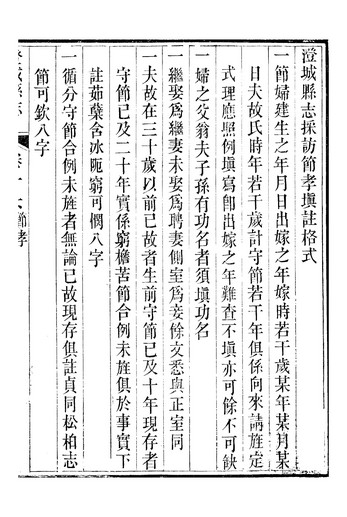 澄城縣志採訪節孝填註格式
一節婦建生之年月日出嫁之年嫁時若干歲某年某月某
日夫故氏時年若干歲計守節若干年俱係向來請旌定
式理應照例塡寫卽出嫁之年難查不塡亦可餘不可缺
一婦之父翁夫子孫有功名者須塡功名
一繼娶爲繼妻未娶爲聘妻側室爲妾餘文悉與正室同
一夫故在三十歲以前已故者生前守節已及十年現存者
守節已及二十年實係窮檐苦節合例未旌俱於事實下
註茹蘖含冰阨窮可憫八字
一循分守節合例未旌者無論已故現存俱註貞同松柏志
節可欽八字
澄城縣志
卷十七 節孝